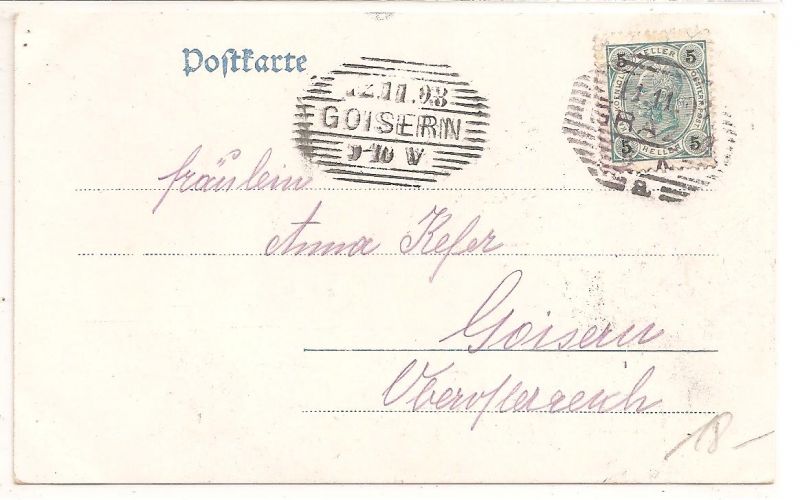 Postkarte
12.11.98
GOISERN
9-10 V
5 HELLER 5
5 HELLER 5
1.11
a.
fräulein
Anna Kefer
Goisern
Oberösterreich
18 -